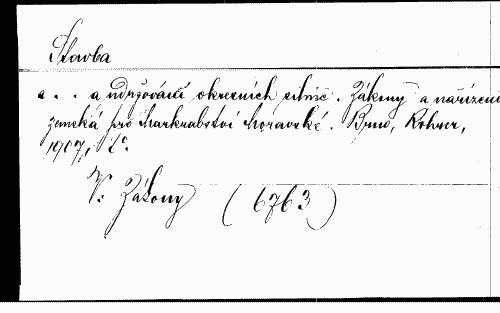 Stavba
a . . a udržování okresních silnic. Zákony a nařízení
zemská pro Markrabství Moravské. Brno, Rohrer,
1907, 8°.
V: Zákony (6763)